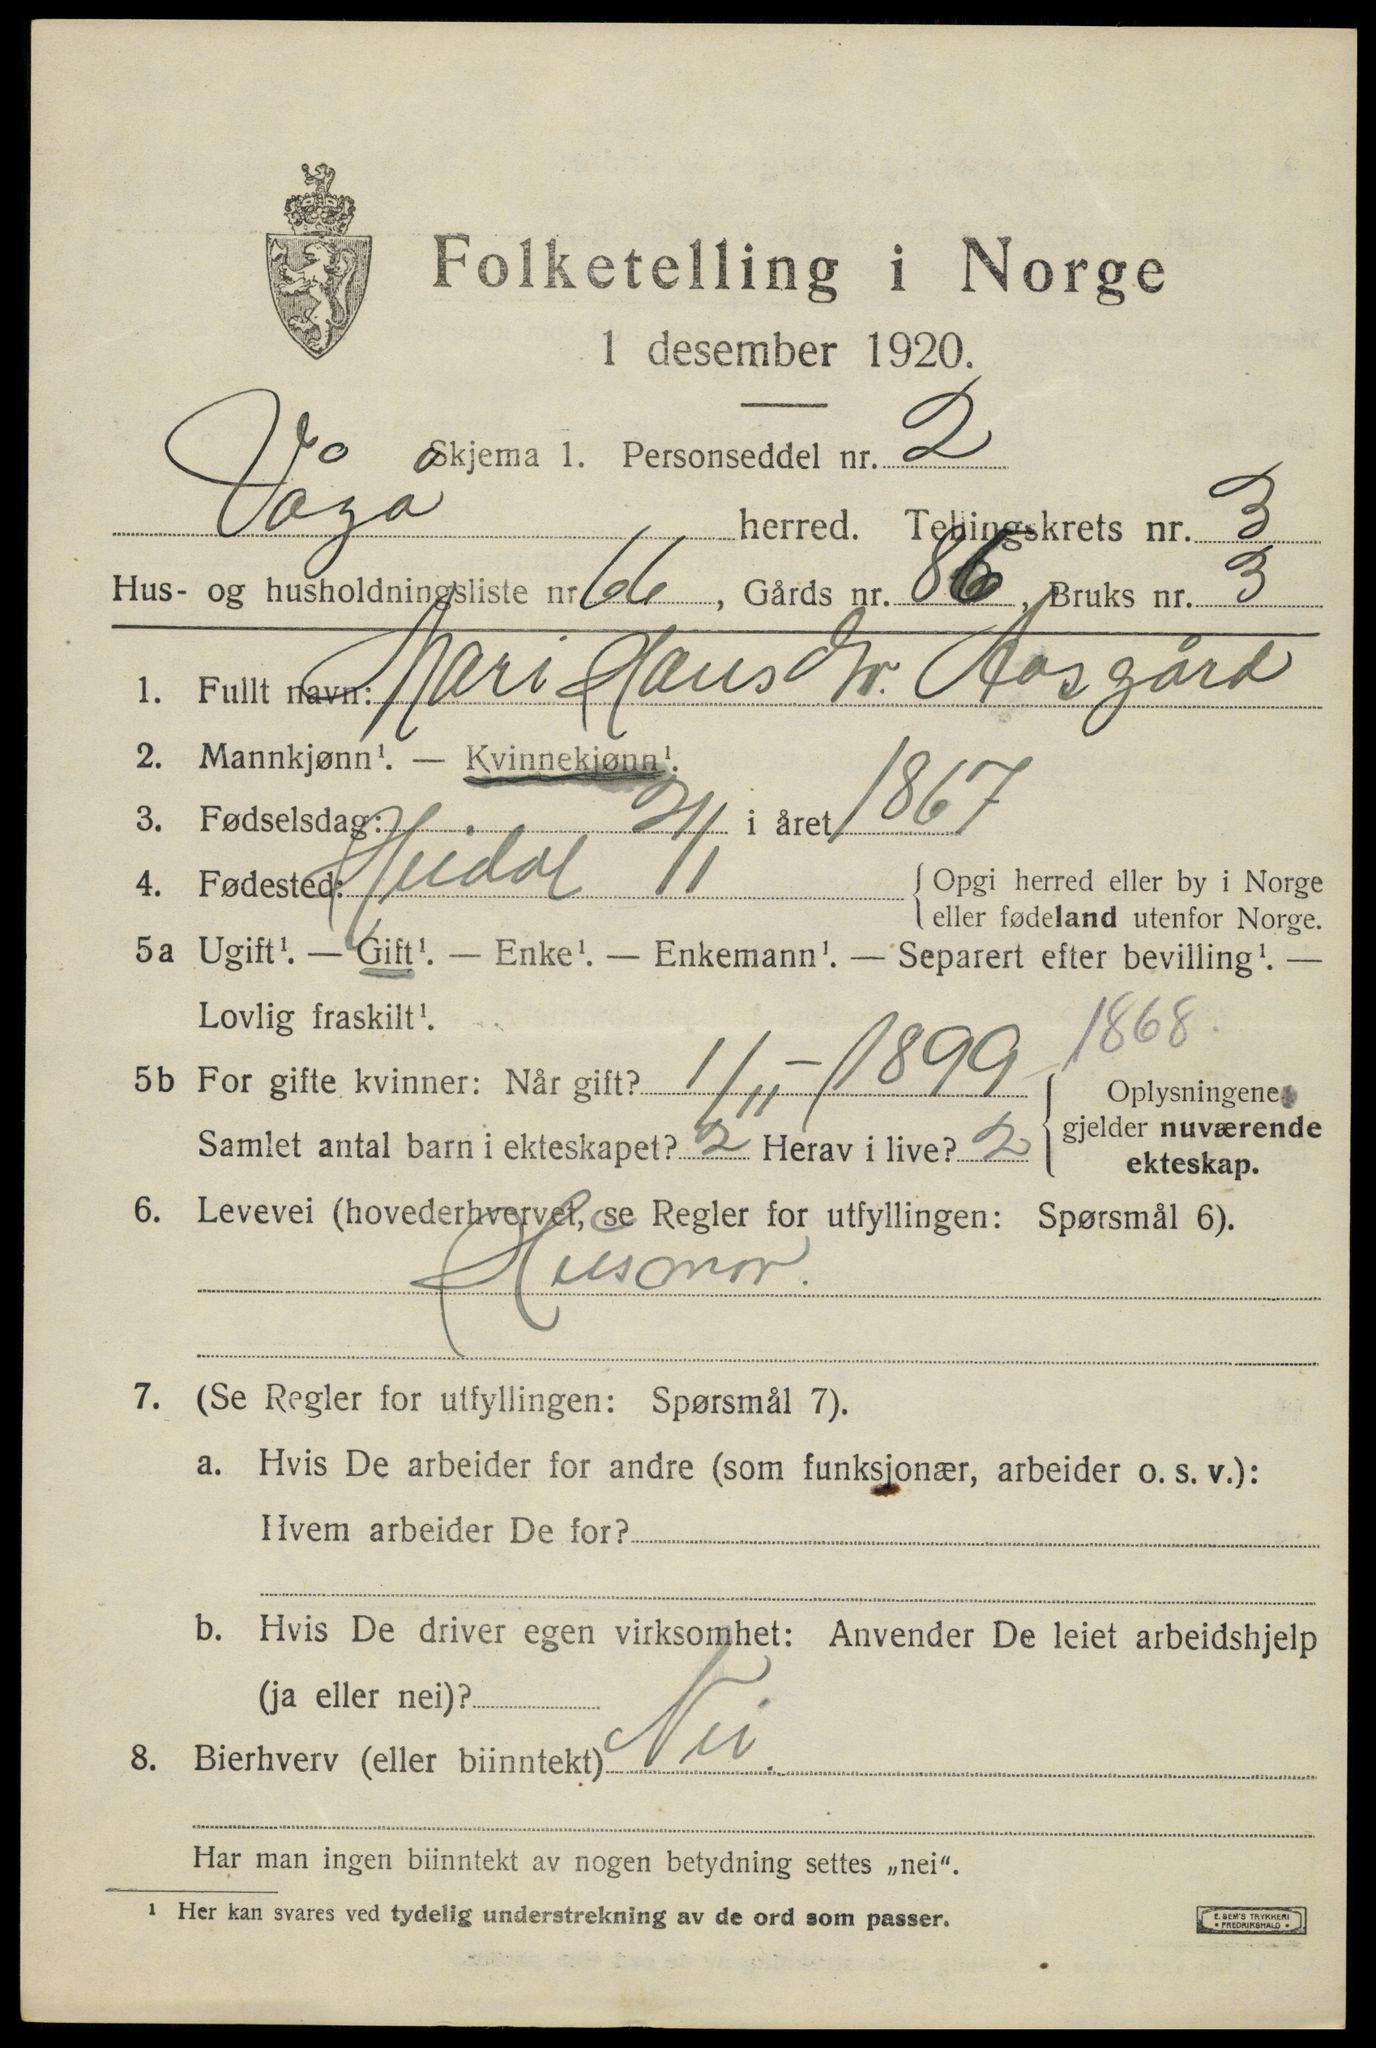 Folketelling i Norge
1 desember 1920.
Skjema 1. Personseddel nr. 2
Vågå herred. Tellingskrets nr. 3
Hus- og husholdningsliste nr 66, Gårds nr. 86, Bruks nr. 3
1. Fullt navn: Mari Hansdtr. Aasgård
2. Mannkjønn¹. — Kvinnekjønn¹.
3. Fødselsdag: 21/11 i året 1867
4. Fødested: Heidal { Opgi herred eller by i Norge
eller fødeland utenfor Norge.
5a Ugift¹. — Gift¹. — Enke¹. — Enkemann¹. — Separert efter bevilling¹. —
Lovlig fraskilt¹.
1868.
5b For gifte kvinner: Når gift? 1/11 - 1899 { Oplysningene
Samlet antal barn i ekteskapet? 2 Herav i live? 2 gjelder nuværende
ekteskap.
6. Levevei (hovederhvervet, se Regler for utfyllingen: Spørsmål 6).
Husmor.
7. (Se Regler for utfyllingen: Spørsmål 7).
a. Hvis De arbeider for andre (som funksjonær, arbeider o. s. v.):
Hvem arbeider De for?
b. Hvis De driver egen virksomhet: Anvender De leiet arbeidshjelp
(ja eller nei)?
8. Bierhverv (eller biinntekt) Nei.
Har man ingen biinntekt av nogen betydning settes „nei“.
¹ Her kan svares ved tydelig understrekning av de ord som passer.
E. SEM'S TRYKKERI
• FREDRIKSHALD •